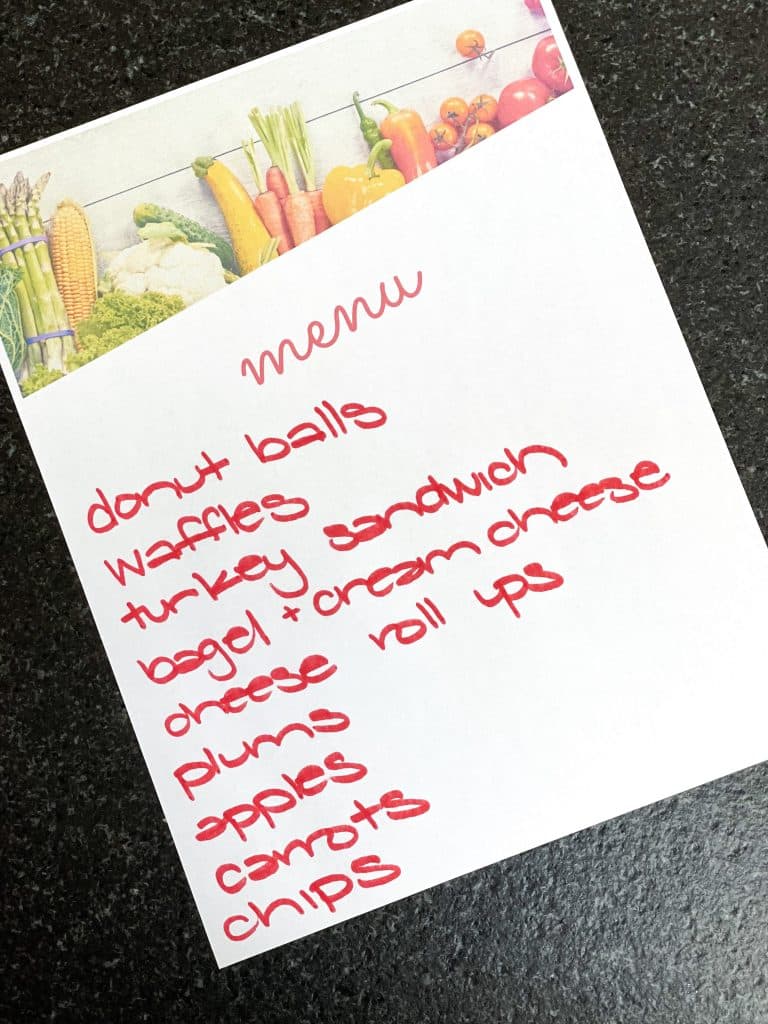 menu
donut balls
waffles
turkey sandwich
bagel + cream cheese
cheese roll ups
plums
apples
carrots
chips